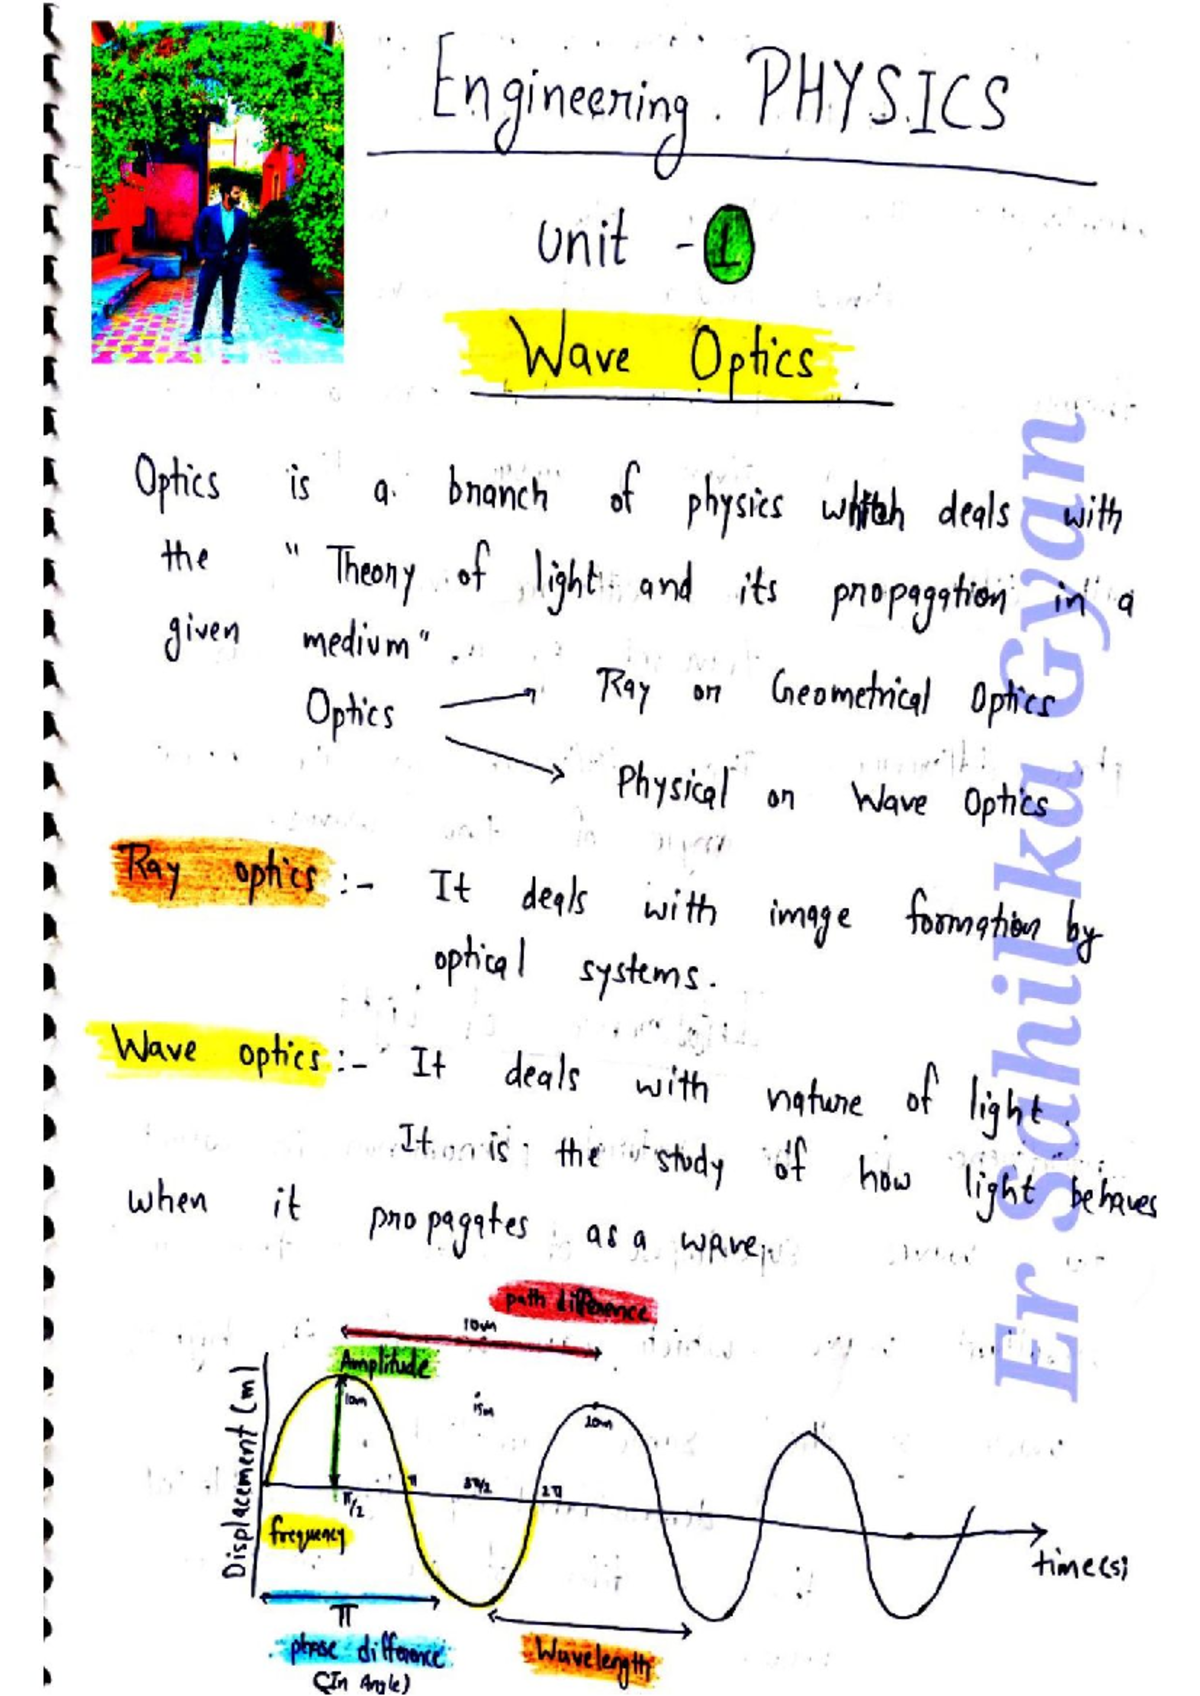 Engineering PHYSICS
unit - 1
Wave Optics
Optics is a branch of physics which deals with
the "Theory of light and its propagation in a
given medium".
Optics
Ray or Geometrical Optics
Physical or Wave Optics
Ray optics :- It deals with image formation by
optical systems.
Wave optics :- It deals with nature of light.
It is the study of how light behaves
when it propagates as a wave.
path difference
10m
Amplitude
10m
15m
20m
Displacement (m)
π/2
π
3π/2
2π
frequency
time(s)
π
phase difference
(In Angle)
Wavelength
Er Sahil ka Gyan